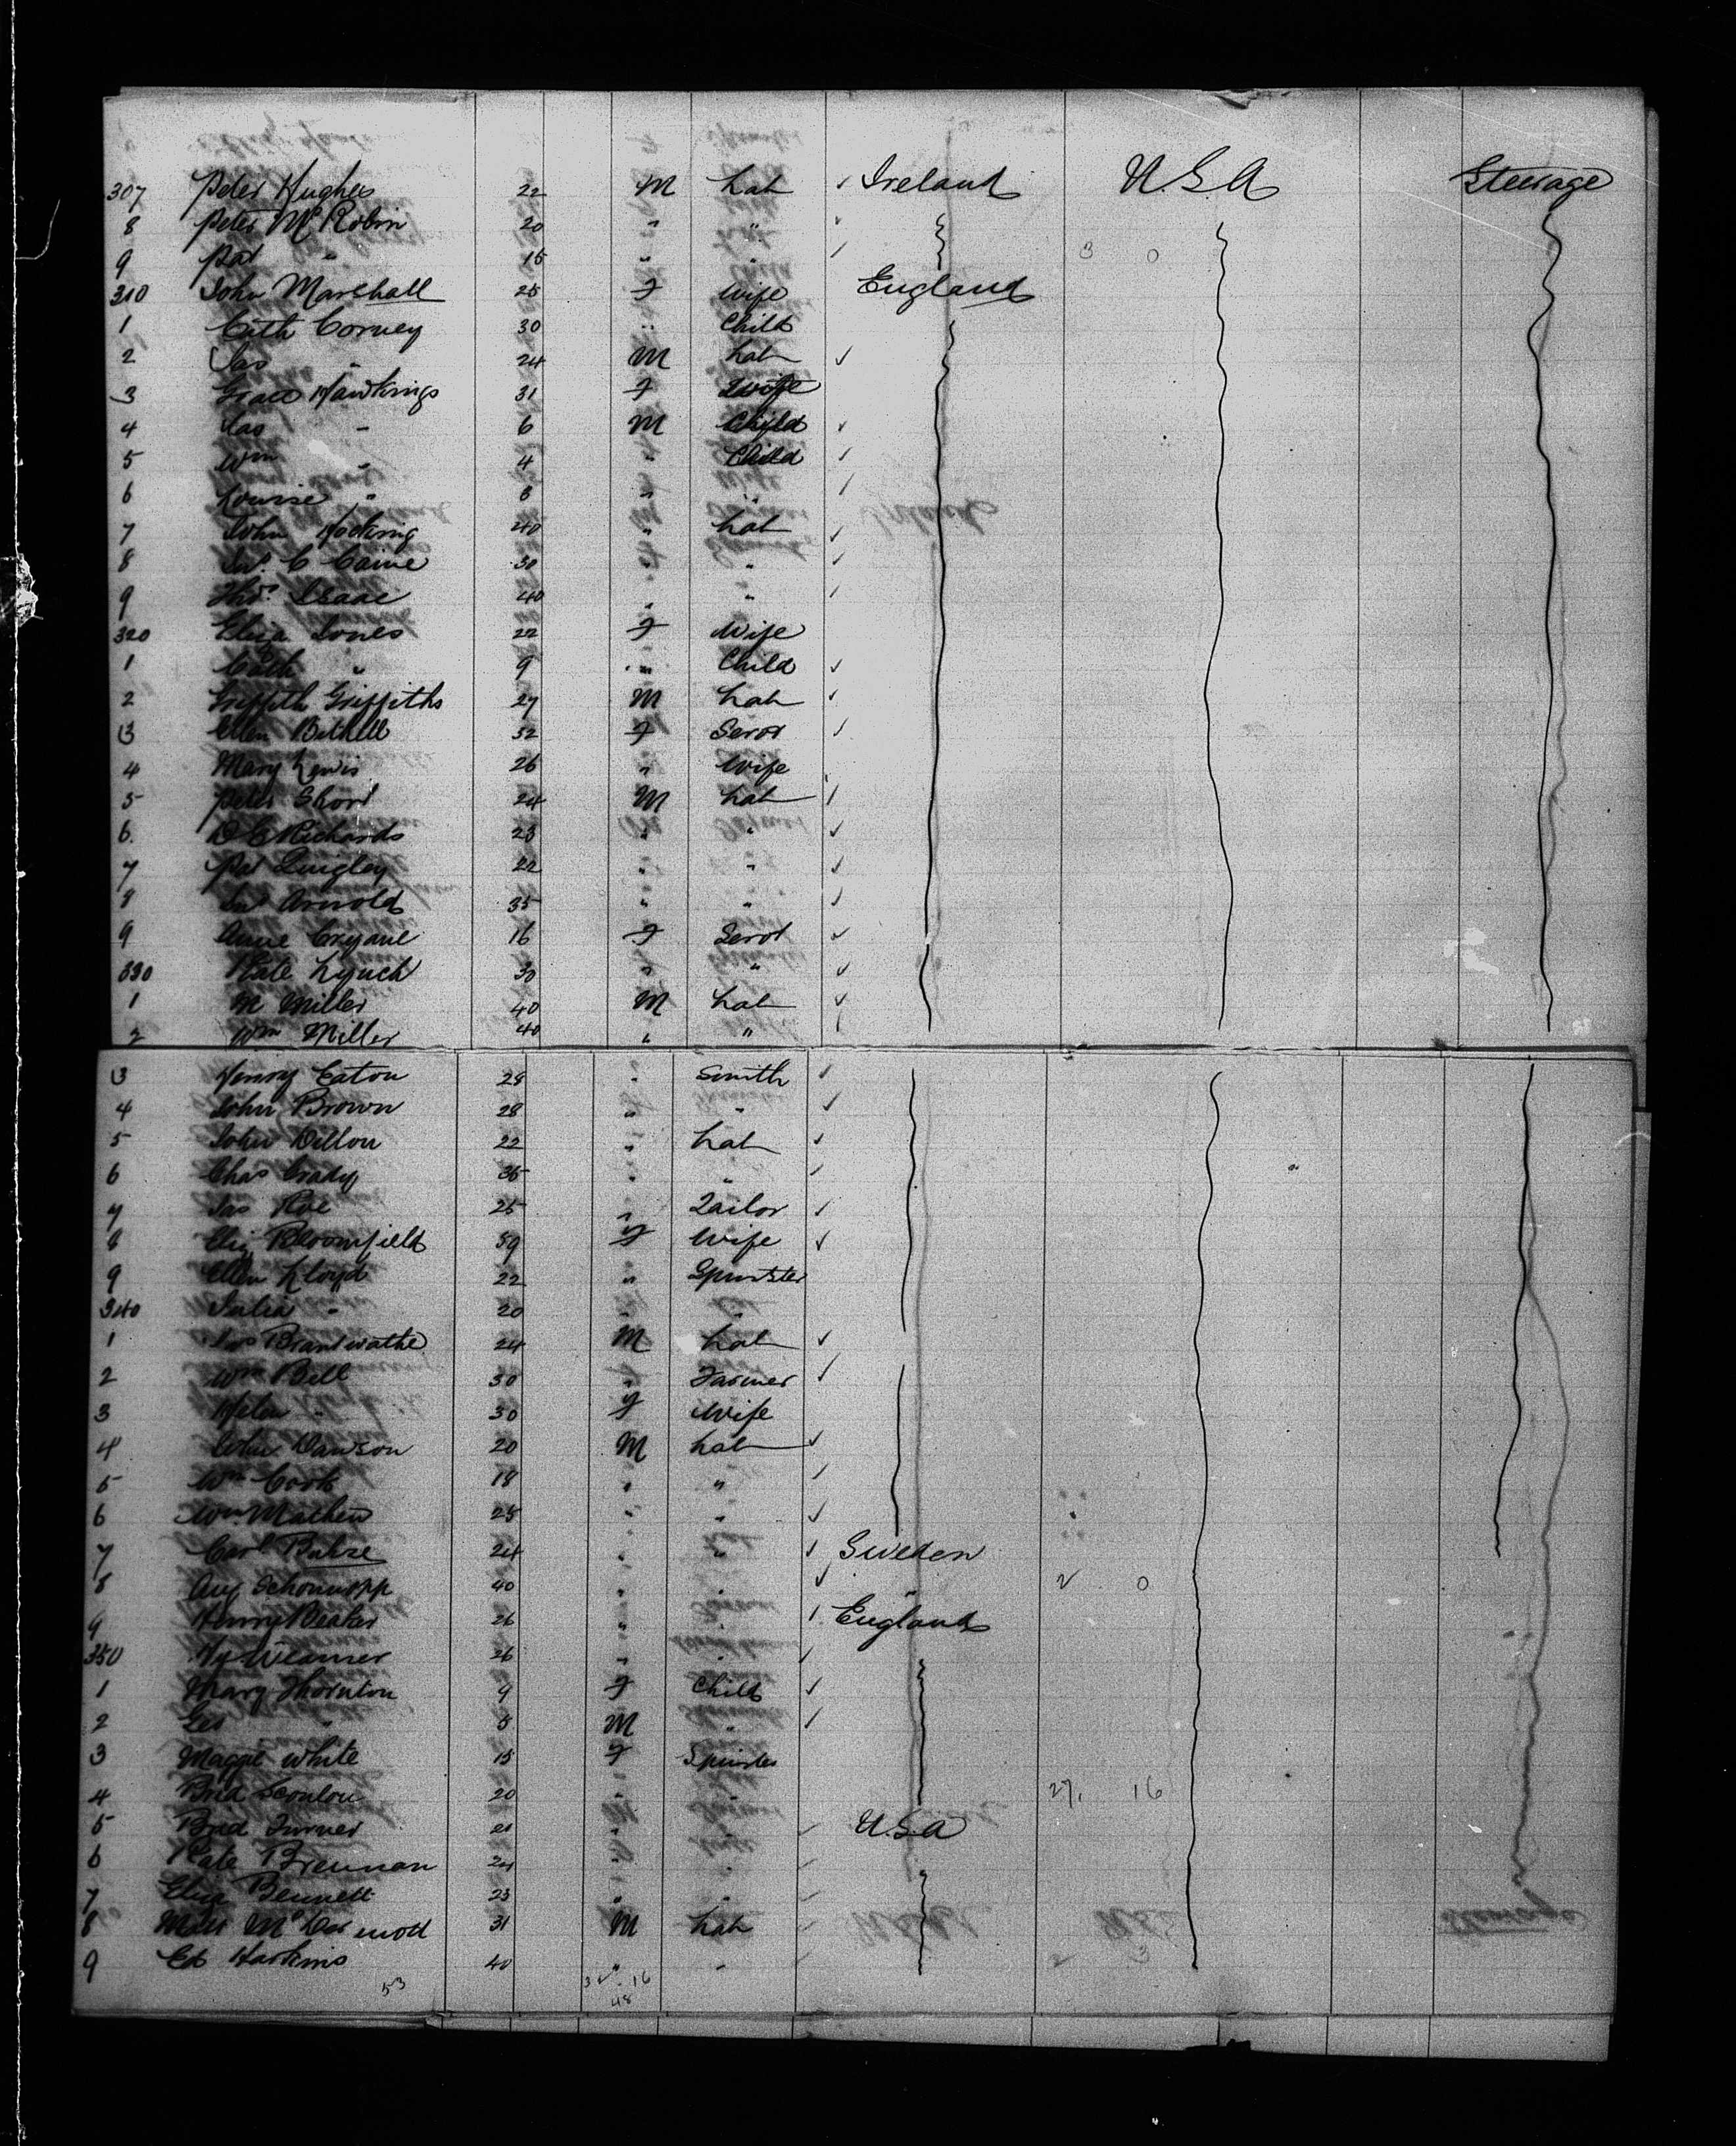 307 Peter Hughes 22 M Lab ✓ Ireland U.S.A Steerage
8 Peter McRobin 20 " " ✓
9 Pat " 15 " " ✓ 3 0
310 John Marshall 25 F Wife England
1 Cath Corney 30 " Child
2 Jas " 24 M Lab ✓
3 Grace Hawkings 31 F Wife
4 Jas " 6 M Child ✓
5 Wm " 4 " Child ✓
6 Louise " 8 " " ✓
7 John Hocking 40 " Lab ✓
8 Jno C Caine 30 " " ✓
9 Thos Isaac 40 " " ✓
320 Eliza Jones 22 F Wife
1 Cath " 9 " Child ✓
2 Griffith Griffiths 27 M Lab ✓
3 Ellen Bithell 32 F Servt ✓
4 Mary Lewis 26 " Wife
5 Peter Short 24 M Lab ✓
6 D C Richards 23 " " ✓
7 Pat Quigley 22 " " ✓
8 Jno Arnold 35 " " ✓
9 Anne Cryane 16 F Servt ✓
330 Kate Lynch 30 " " ✓
1 M Miller 40 M Lab ✓
2 Wm Miller 40 " " ✓
3 Henry Eaton 28 " Smith ✓
4 John Brown 28 " " ✓
5 John Dillon 22 " Lab ✓
6 Chas Grady 35 " " ✓
7 Jas Roe 25 " Tailor ✓
8 Eliz Bloomfield 59 F Wife ✓
9 Ellen Lloyd 22 " Spinster
340 Julia " 20 " "
1 Jas 24 M Lab ✓
2 Wm Bell 30 " Farmer ✓
3 Helen " 30 F Wife
4 John Dawson 20 M Lab ✓
5 Wm Cook 18 " " ✓
6 Wm Mathew 25 " " ✓
7 Carl 24 " " ✓ Sweden
8 Aug 40 " " ✓ " 2 0
9 Henry Beaker 26 " " ✓ England
350 Hy Weamer 26 " " ✓
1 Mary Thornton 9 F Child ✓
2 Geo " 5 M " ✓
3 Maggie White 15 F Spinster
4 Brid Sconlon 20 " " 27, 16
5 Brid Turner 21 " " ✓ U.S.A
6 Kate Brennan 24 " " ✓
7 Eliza Bennett 23 " " ✓
8 McDermott 31 M Lab ✓
9 Ed Harkins 40 " " ✓ 2 3
53 16
48